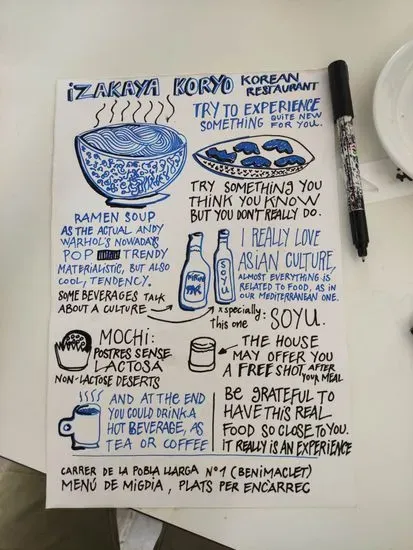 iZAKAYA KORYO KOREAN RESTAURANT
TRY TO EXPERIENCE
SOMETHING QUITE NEW
FOR YOU.
TRY SOMETHING YOU
THINK YOU KNOW
BUT YOU DON'T REALLY DO.
RAMEN SOUP
AS THE ACTUAL ANDY
WARHOL'S NOWADAYS
POP TRENDY
MATERIALISTIC, BUT ALSO
COOL, TENDENCY.
SOME BEVERAGES TALK
ABOUT A CULTURE
SOYU
I REALLY LOVE
ASIAN CULTURE,
ALMOST EVERYTHING IS
RELATED TO FOOD, AS IN
OUR MEDITERRANEAN ONE.
* specially: SOYU.
this one
MOCHI:
POSTRES SENSE
LACTOSA
NON-LACTOSE DESERTS
THE HOUSE
MAY OFFER YOU
A FREE SHOT AFTER
YOUR MEAL
AND AT THE END
YOU COULD DRINK A
HOT BEVERAGE, AS
TEA OR COFFEE
BE GRATEFUL TO
HAVE THIS REAL
FOOD SO CLOSE TO YOU.
IT REALLY IS AN EXPERIENCE
CARRER DE LA POBLA LLARGA Nº1 (BENIMACLET)
MENÚ DE MIGDIA, PLATS PER ENCÀRREC